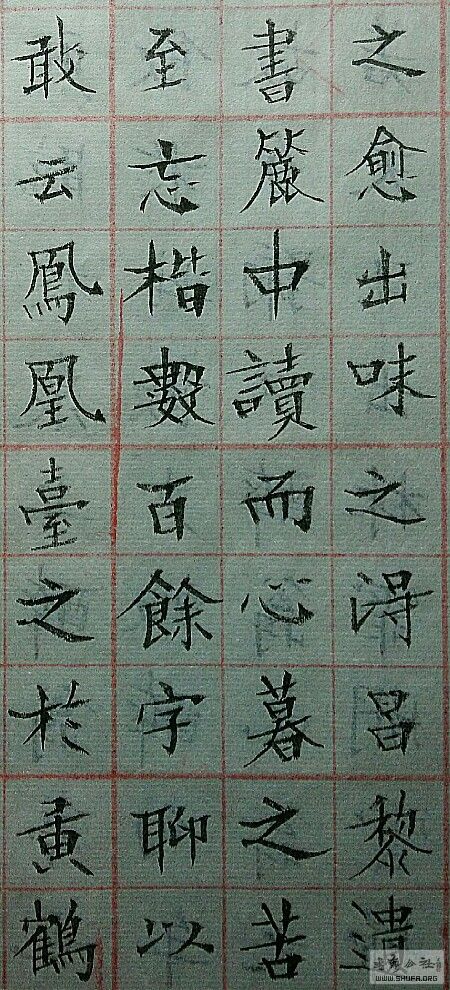 之愈出味之淂昌黎遺
書簏中讀而心暮之苦
至忘楷數百餘字聊以
敢云鳳凰臺之於黄鶴
WWW.SHUFA.ORG